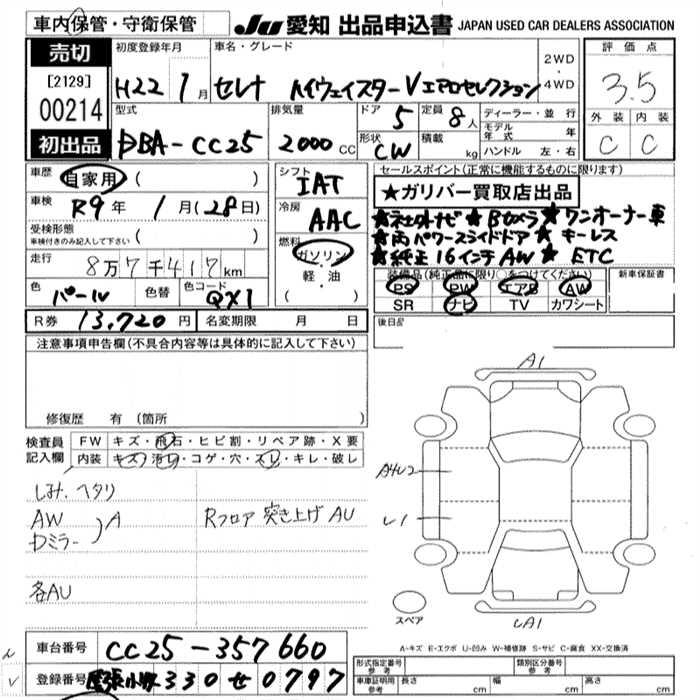 車内保管・守衛保管
JU 愛知 出品申込書 JAPAN USED CAR DEALERS ASSOCIATION
売切
[2129]
00214
初出品
初度登録年月
H22年 1月
車名・グレード
セレナ ハイウェイスターVエアロセレクション
2WD
・
4WD
評価点
3.5
外装 内装
C C
型式
DBA-CC25
排気量
2000 CC
ドア 5
形状 CW
定員 8人
積載 kg
ディーラー・並行
モデル年式 年
ハンドル 左・右
車歴 自家用 ( )
車検 R9年 1月(28日)
受検形態
車検付きのみ記入して下さい ( )
走行 8万7千417km
色 パール 色替 色コード QX1
シフト
IAT
冷房
AAC
燃料
ガソリン
・
軽・油
セールスポイント(正常に機能するものに限ります)
★ガリバー買取店出品
★社外ナビ ★Bカメラ ★ワンオーナー車
★両パワースライドドア ★キーレス
★純正16インチAW ★ETC
装備品(純正品に限り○をつけてください)
PS PW エアB AW
SR ナビ TV カワシート
新車保証書
後日品
R券 13,720円 名変期限 月 日
注意事項申告欄(不具合内容等は具体的に記入して下さい)
修復歴 有 (箇所 )
検査員
記入欄
FW キズ・飛石・ヒビ割・リペア跡・X要
内装 キズ・汚レ・コゲ・穴・スレ・キレ・破レ
しみ、ヘタリ
AW
Dミラー
A
各AU
Rフロア 突き上げ AU
A1
A4U2
U1
UA1
スペア
A-キズ E-エクボ U-凹み W-補修跡 S-サビ C-腐食 XX-交換済
車台番号 CC25-357660
登録番号 尾張小牧 330 せ 0797
形式指定番号 参考
類別区分番号 参考
車庫証明用 参考 長さ cm 幅 cm 高さ cm